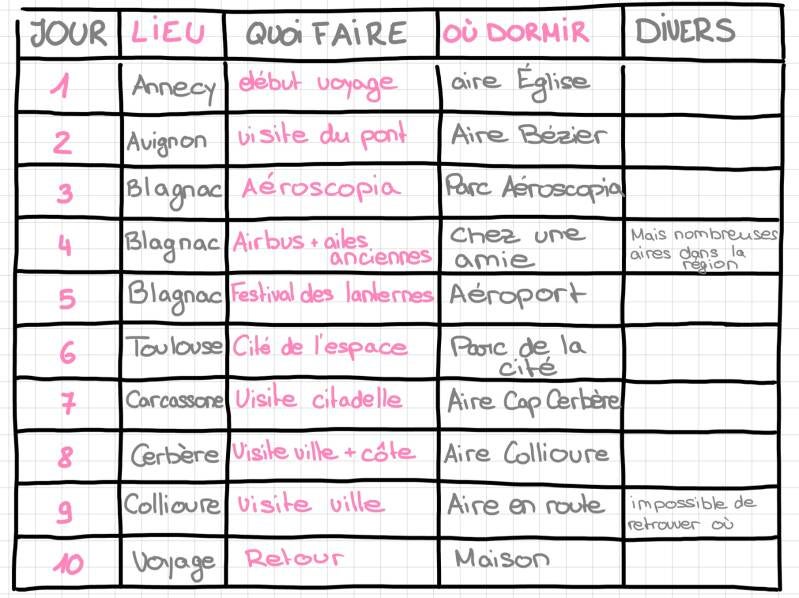 JOUR LIEU QUOI FAIRE OÙ DORMIR DIVERS
1 Annecy début voyage aire Église
2 Avignon visite du pont Aire Bézier
3 Blagnac Aéroscopia Parc Aéroscopia
4 Blagnac Airbus + ailes anciennes Chez une amie Mais nombreuses aires dans la région
5 Blagnac Festival des lanternes Aéroport
6 Toulouse Cité de l'espace Parc de la cité
7 Carcassone Visite citadelle Aire Cap Cerbère
8 Cerbère Visite ville + côte Aire Collioure
9 Collioure Visite ville Aire en route impossible de retrouver où
10 Voyage Retour Maison